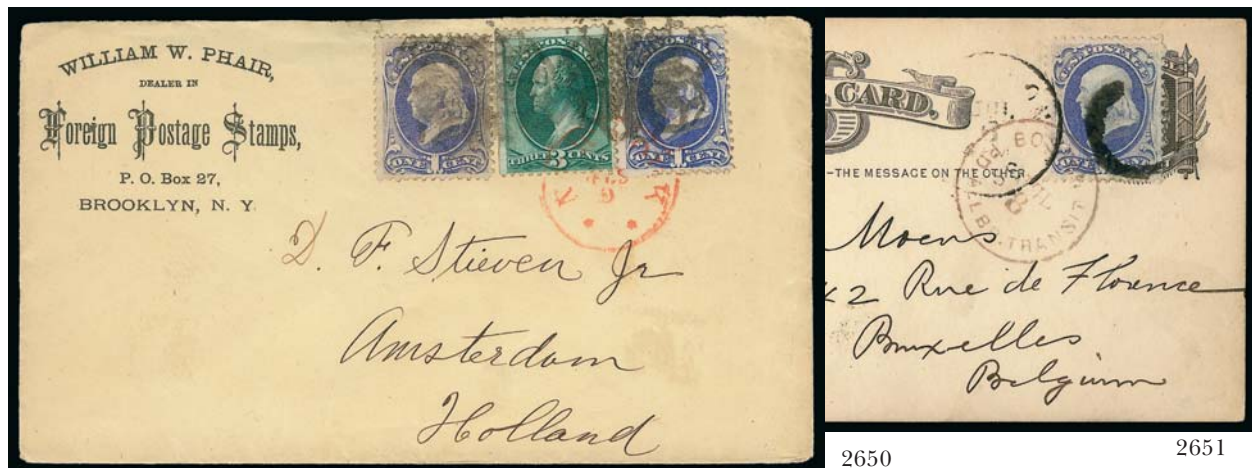 WILLIAM W. PHAIR,
DEALER IN
Foreign Postage Stamps,
P. O. Box 27,
BROOKLYN, N. Y.
U.S. POSTAGE
ONE 1 CENT
U.S. POSTAGE
THREE 3 CENTS
U.S. POSTAGE
ONE 1 CENT
N K
D. F. Stieven Jr
Amsterdam
Holland
L CARD.
U.S. POSTAGE
-THE MESSAGE ON THE OTHER
TRANSIT
Moens
42 Rue de Florence
Bruxelles
Belgium
2650
2651